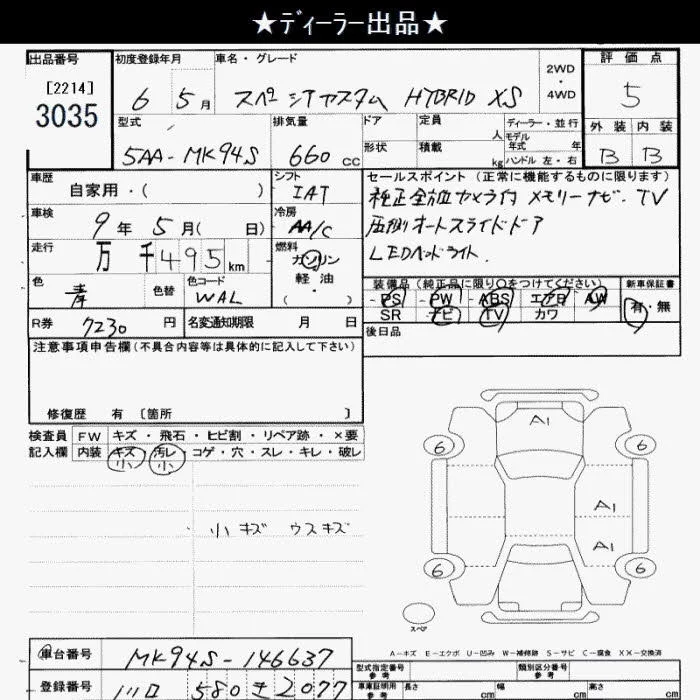 ★ディーラー出品★
出品番号 初度登録年月 車名・グレード 2WD・4WD 評価点
[2214] 3035 6 5月 スペーシアカスタム HYBRID XS 5
型式 排気量 ドア 定員 人 ディーラー・並行 外装 内装
モデル年式 年
5AA-MK94S 660cc 形状 積載 kg ハンドル 左・右 B B
車歴 自家用・( ) シフト IAT セールスポイント(正常に機能するものに限ります)
純正全方位カメラ付 メモリーナビ・TV
車検 9年5月( 日) 冷房 AA/C
両側オートスライドドア
走行 万千495km 燃料 ガソリン
LEDヘッドライト.
軽油
・
( )
色 青 色替 色コード WAL
装備品(純正品に限り○をつけてください) 新車保証書
PS PW ABS エアB AW 有・無
SR ナビ TV カワ
R券 7230円 名変通知期限 月 日
後日品
注意事項申告欄(不具合内容等は具体的に記入して下さい)
修復歴 有 〔箇所 〕
検査員記入欄 FW キズ・飛石・ヒビ割・リペア跡・×要
内装 キズ・汚レ・コゲ・穴・スレ・キレ・破レ
小 小
小キズ ウスキズ
A1
6 6
A1
A1
6 6
スペア
A-キズ E-エクボ U-凹み W-補修跡 S-サビ C-腐食 XX-交換済
車台番号 MK94S-146637 型式指定番号 参考 類別区分番号 参考
登録番号 川口 580 き 2077 車庫証明用 参考 長さ cm 幅 cm 高さ cm